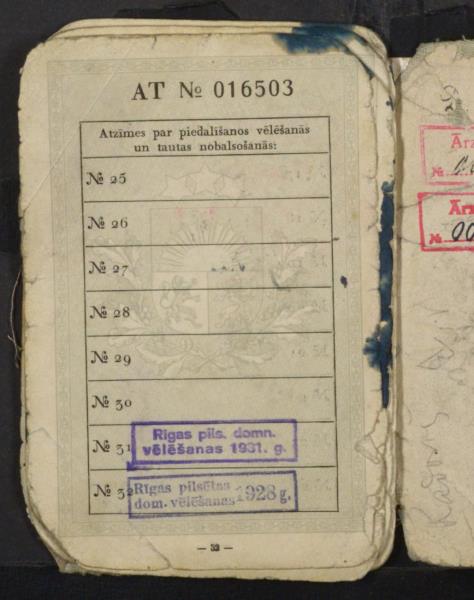 AT № 016503
Atzīmes par piedalīšanos vēlēšanās
un tautas nobalsošanās:
№ 25
№ 26
№ 27
№ 28
№ 29
№ 30
№ 31 Rīgas pils. domn.
vēlēšanas 1931. g.
№ 32 Rīgas pilsētas
dom. vēlēšanas 1928 g.
— 32 —
№
№ 00